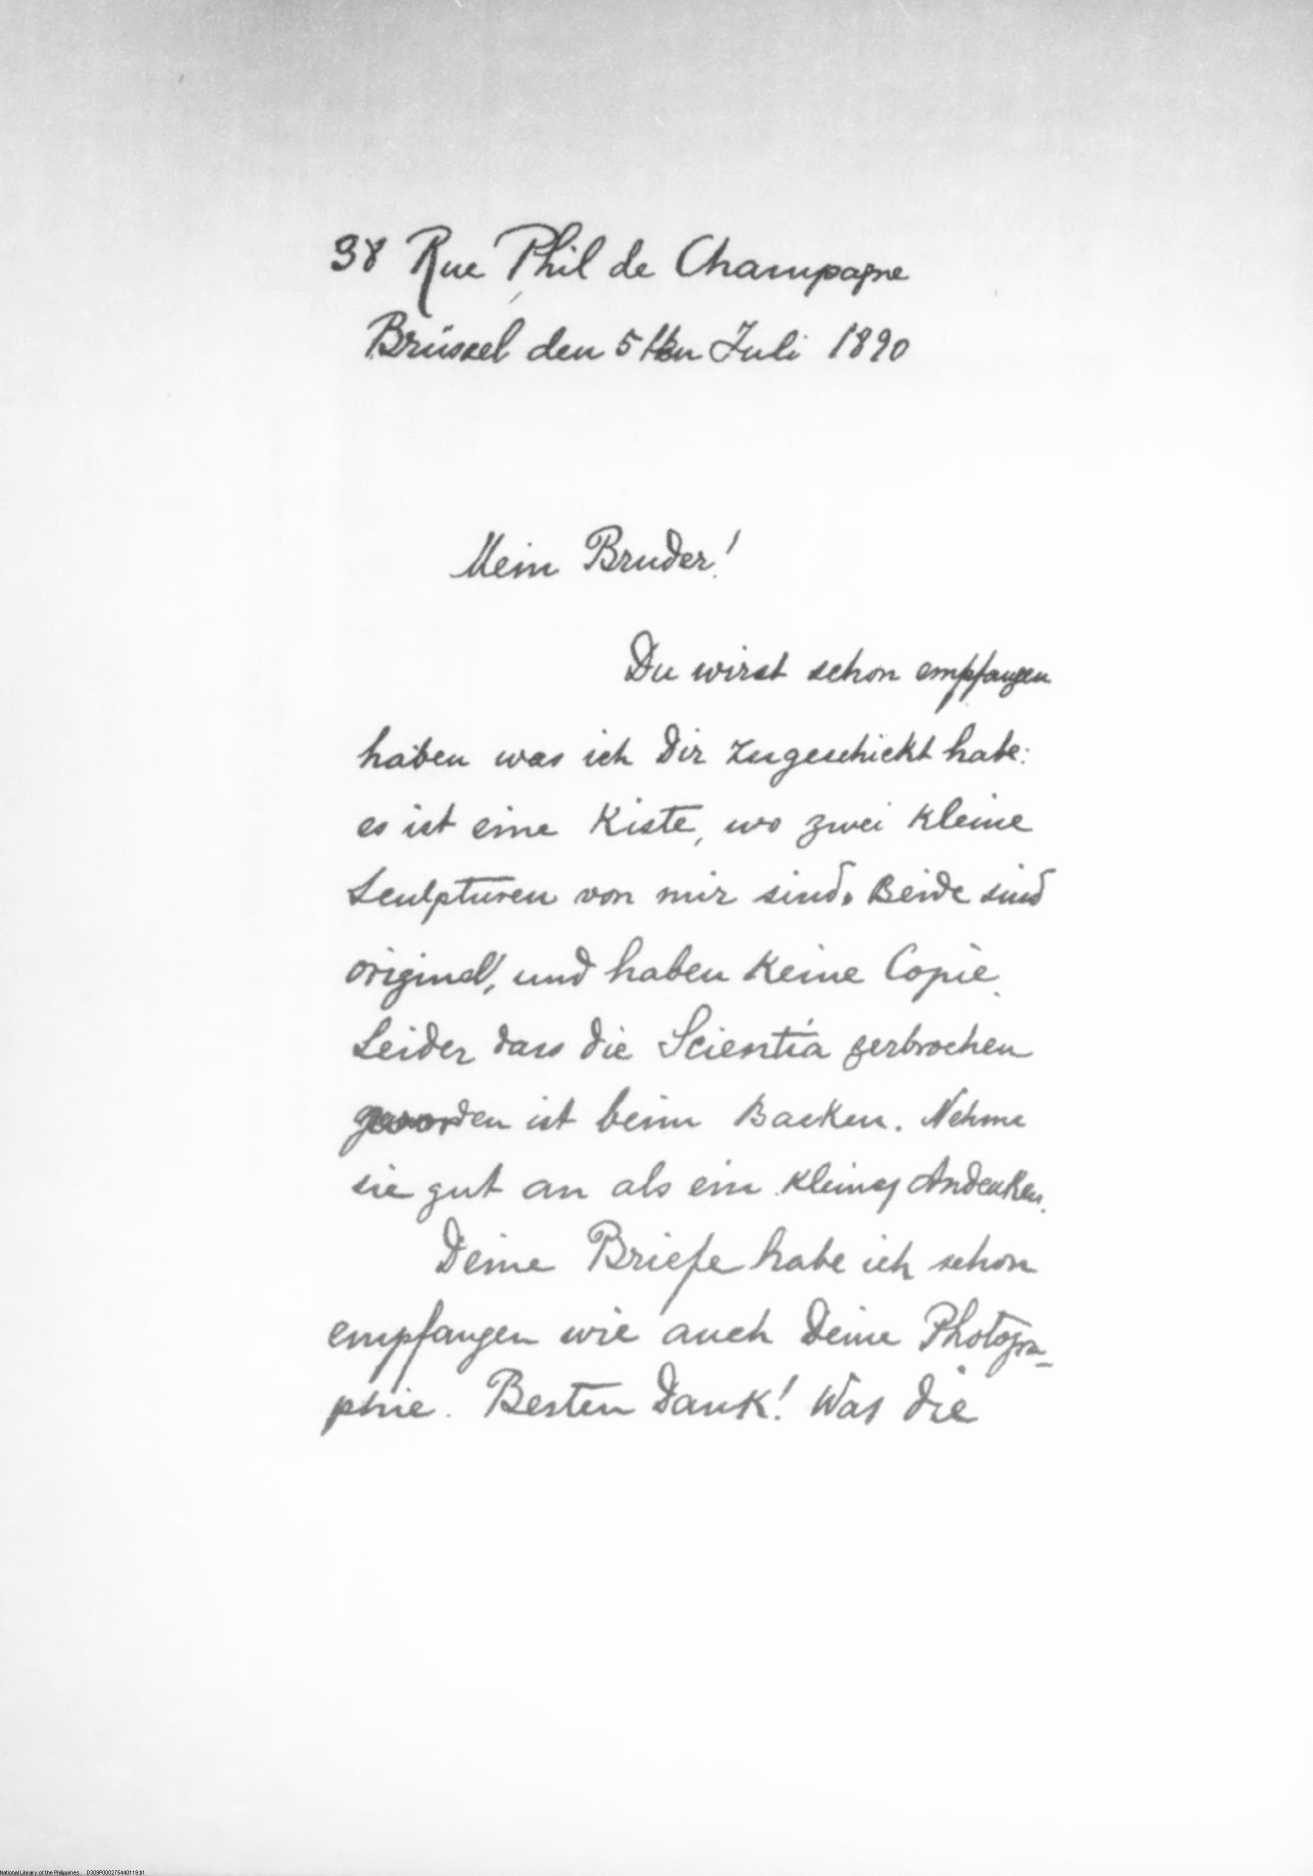 38 Rue Phil de Champagne
Brüssel den 5ten Juli 1890
Mein Bruder!
Du wirst schon empfangen
haben was ich Dir zugeschickt habe:
es ist eine Kiste, wo zwei kleine
Sculpturen von mir sind. Beide sind
original, und haben keine Copie.
Leider dass die Scientia zerbrochen
geworden ist beim Backen. Nehme
sie gut an als ein kleines Andenken.
Deine Briefe habe ich schon
empfangen wie auch Deine Photogra-
phie. Besten Dank! Was die
National Library of the Philippines